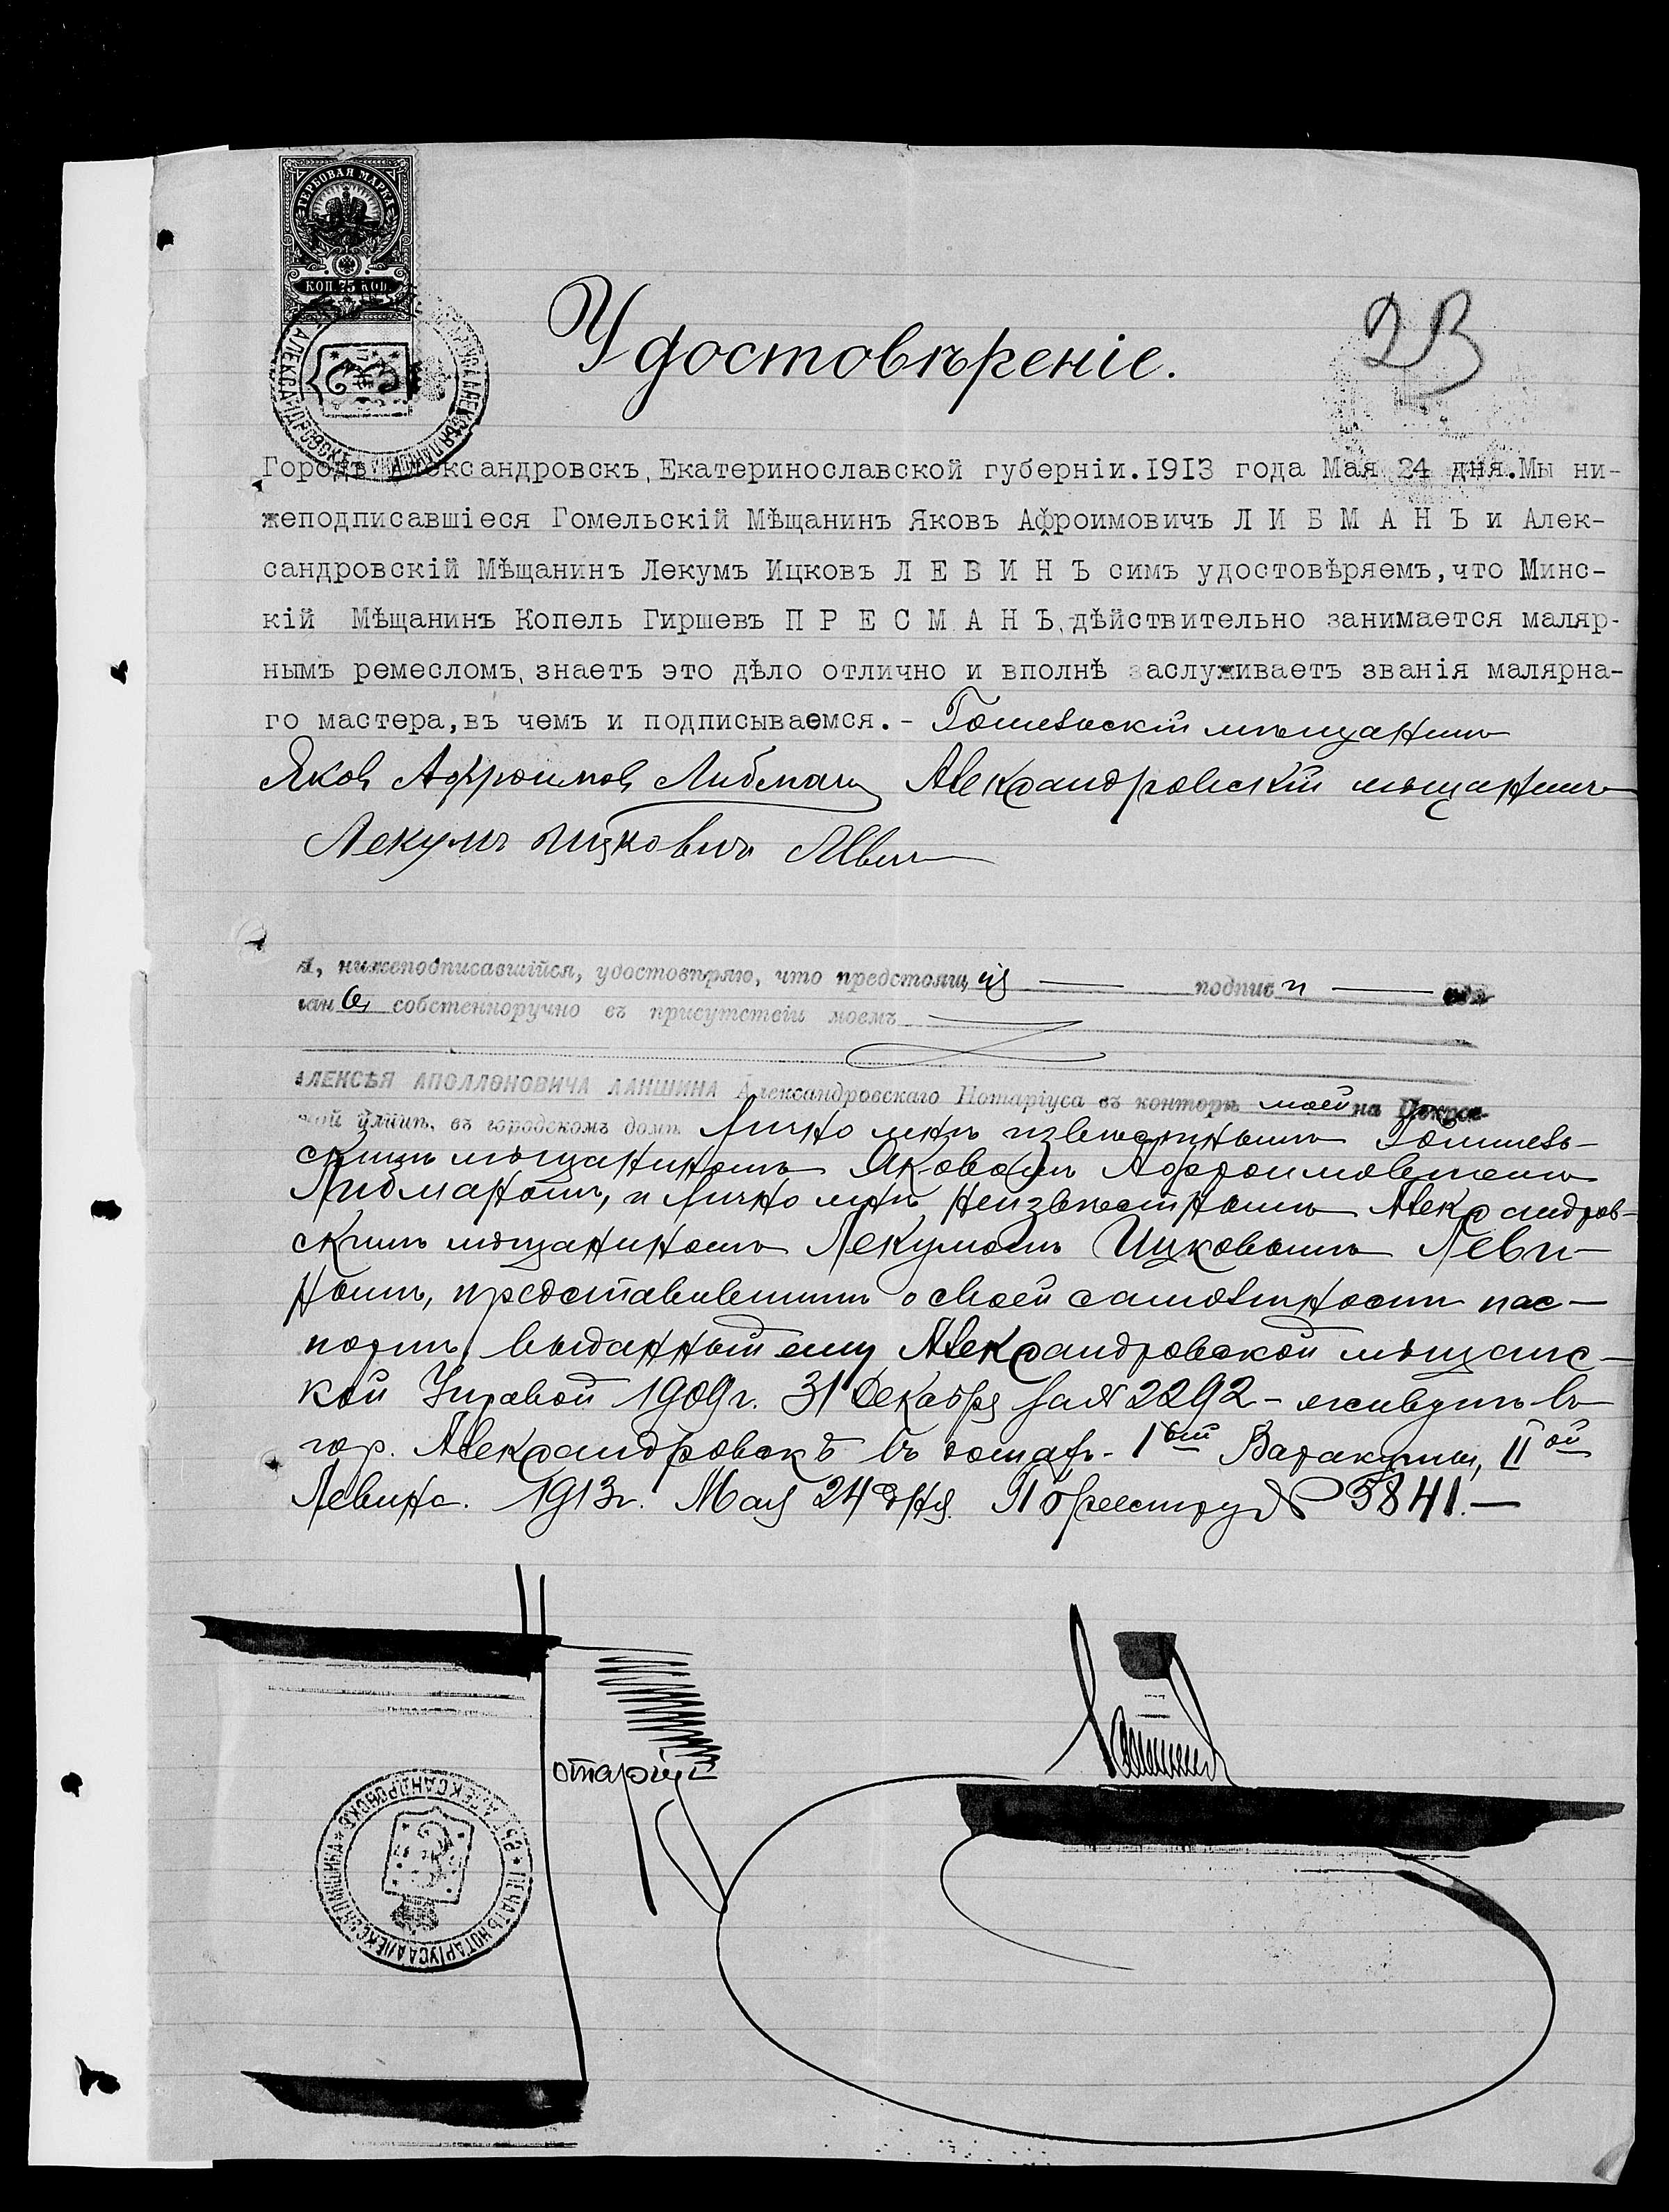 ГЕРБОВАЯ МАРКА
КОП. 75 КОП.
Удостовѣреніе.
23
Городъ Александровскъ, Екатеринославской губерніи. 1913 года Мая 24 дня. Мы ни-
жеподписавшіеся Гомельскій Мѣщанинъ Яковъ Афроимовичъ Л И Б М А Н Ъ и Алек-
сандровскій Мѣщанинъ Лекумъ Ицковъ Л Е В И Н Ъ симъ удостовѣряемъ, что Минс-
кій Мѣщанинъ Копель Гиршевъ П Р Е С М А Н Ъ, дѣйствительно занимается маляр-
нымъ ремесломъ, знаетъ это дѣло отлично и вполнѣ заслуживаетъ званія малярна-
го мастера, въ чемъ и подписываемся. - Гомельскій мѣщанинъ
Яковъ Афроимовъ Либманъ Александровскій мѣщанинъ
Лекумъ Ицковичъ Левинъ
Я, нижеподписавшійся, удостовѣряю, что предстоящія — подписи —
саны собственноручно въ присутствіи моемъ
АЛЕКСѢЯ АПОЛЛОНОВИЧА ЛАНШИНА Александровскаго Нотаріуса въ конторѣ моей на Покров-
ской улицѣ, въ городскомъ домѣ Лично мнѣ извѣстнымъ Гомель-
скимъ мѣщаниномъ Яковомъ Афроимовичемъ
Либманомъ, и лично мнѣ неизвѣстнымъ Александров-
скимъ мѣщаниномъ Лекумомъ Ицковымъ Леви-
нымъ, представившимъ о своей самоличности пас-
портъ, выданный ему Александровской мѣщанс-
кой Управой 1909 г. 31 Декабря за № 2292 - живутъ въ
гор. Александровскѣ въ домахъ - 1ый Варакуты, IIой
Левина. 1913 г. Мая 24 дня. По реестру № 3841. —
Нотаріусъ
Ланшинъ
ПЕЧАТЬ НОТАРІУСА АЛЕКСѢЯ ЛАНШИНА * ВЪ Г. АЛЕКСАНДРОВСКѢ